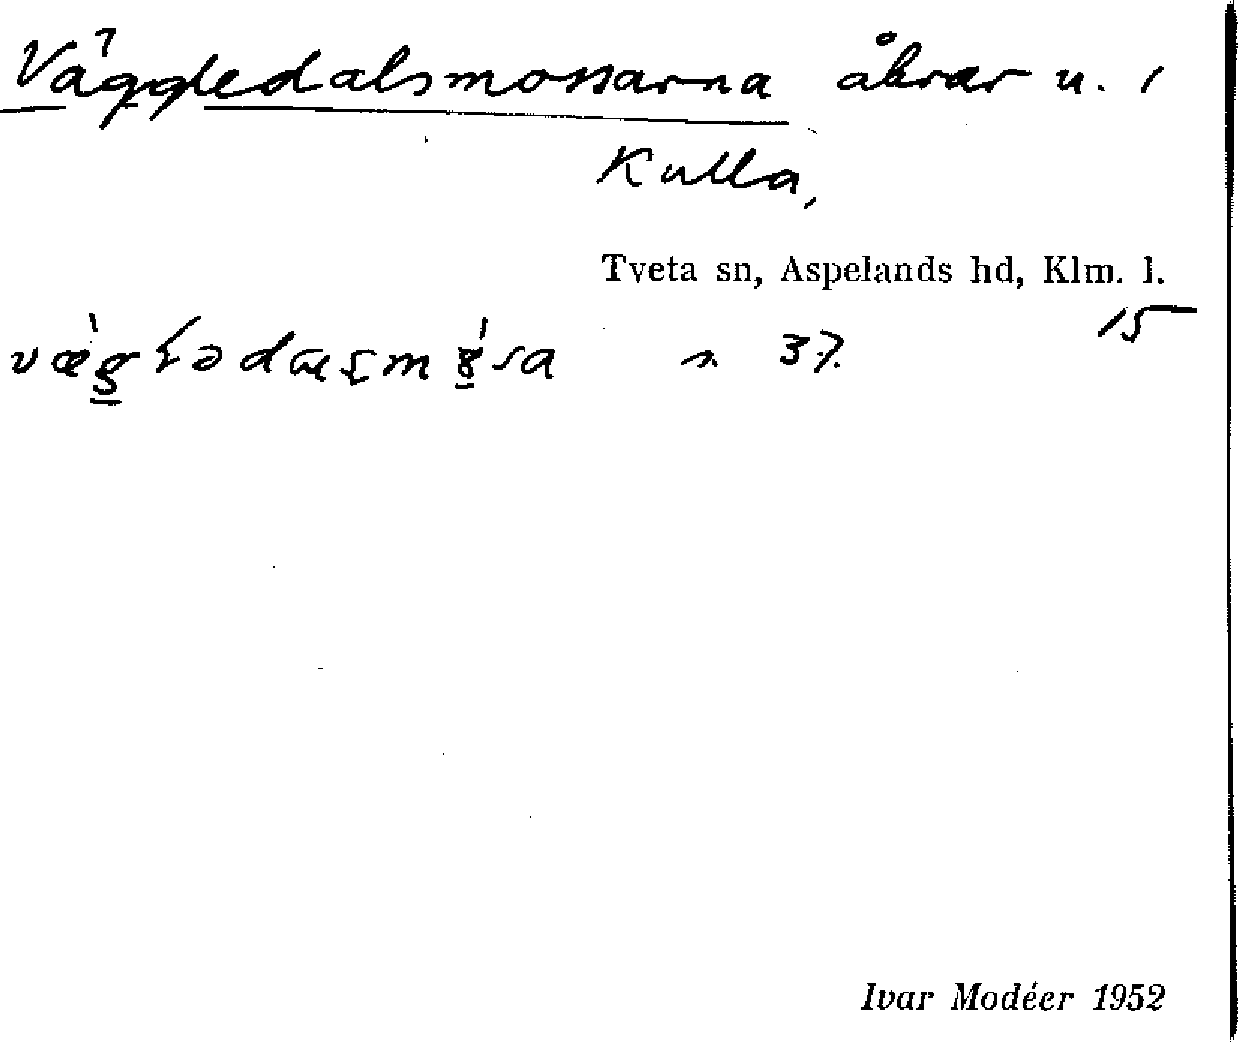 Väggledalsmossarna åkrar u. 1
Kulla,
Tveta sn, Aspelands hd, Klm. l.
15
n 37.
Ivar Modéer 1952